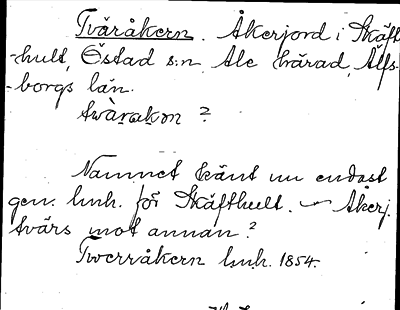 Tväråkern. Åkerjord i Skäft-
-hult, Östad s:n Ale härad, Älfs-
-borgs län.
tvàrakɷn ?
Namnet känt nu endast
gen. lmh. för Skäfthult. — Åkerj.
tvärs mot annan?
Tverråkern lmh. 1854.